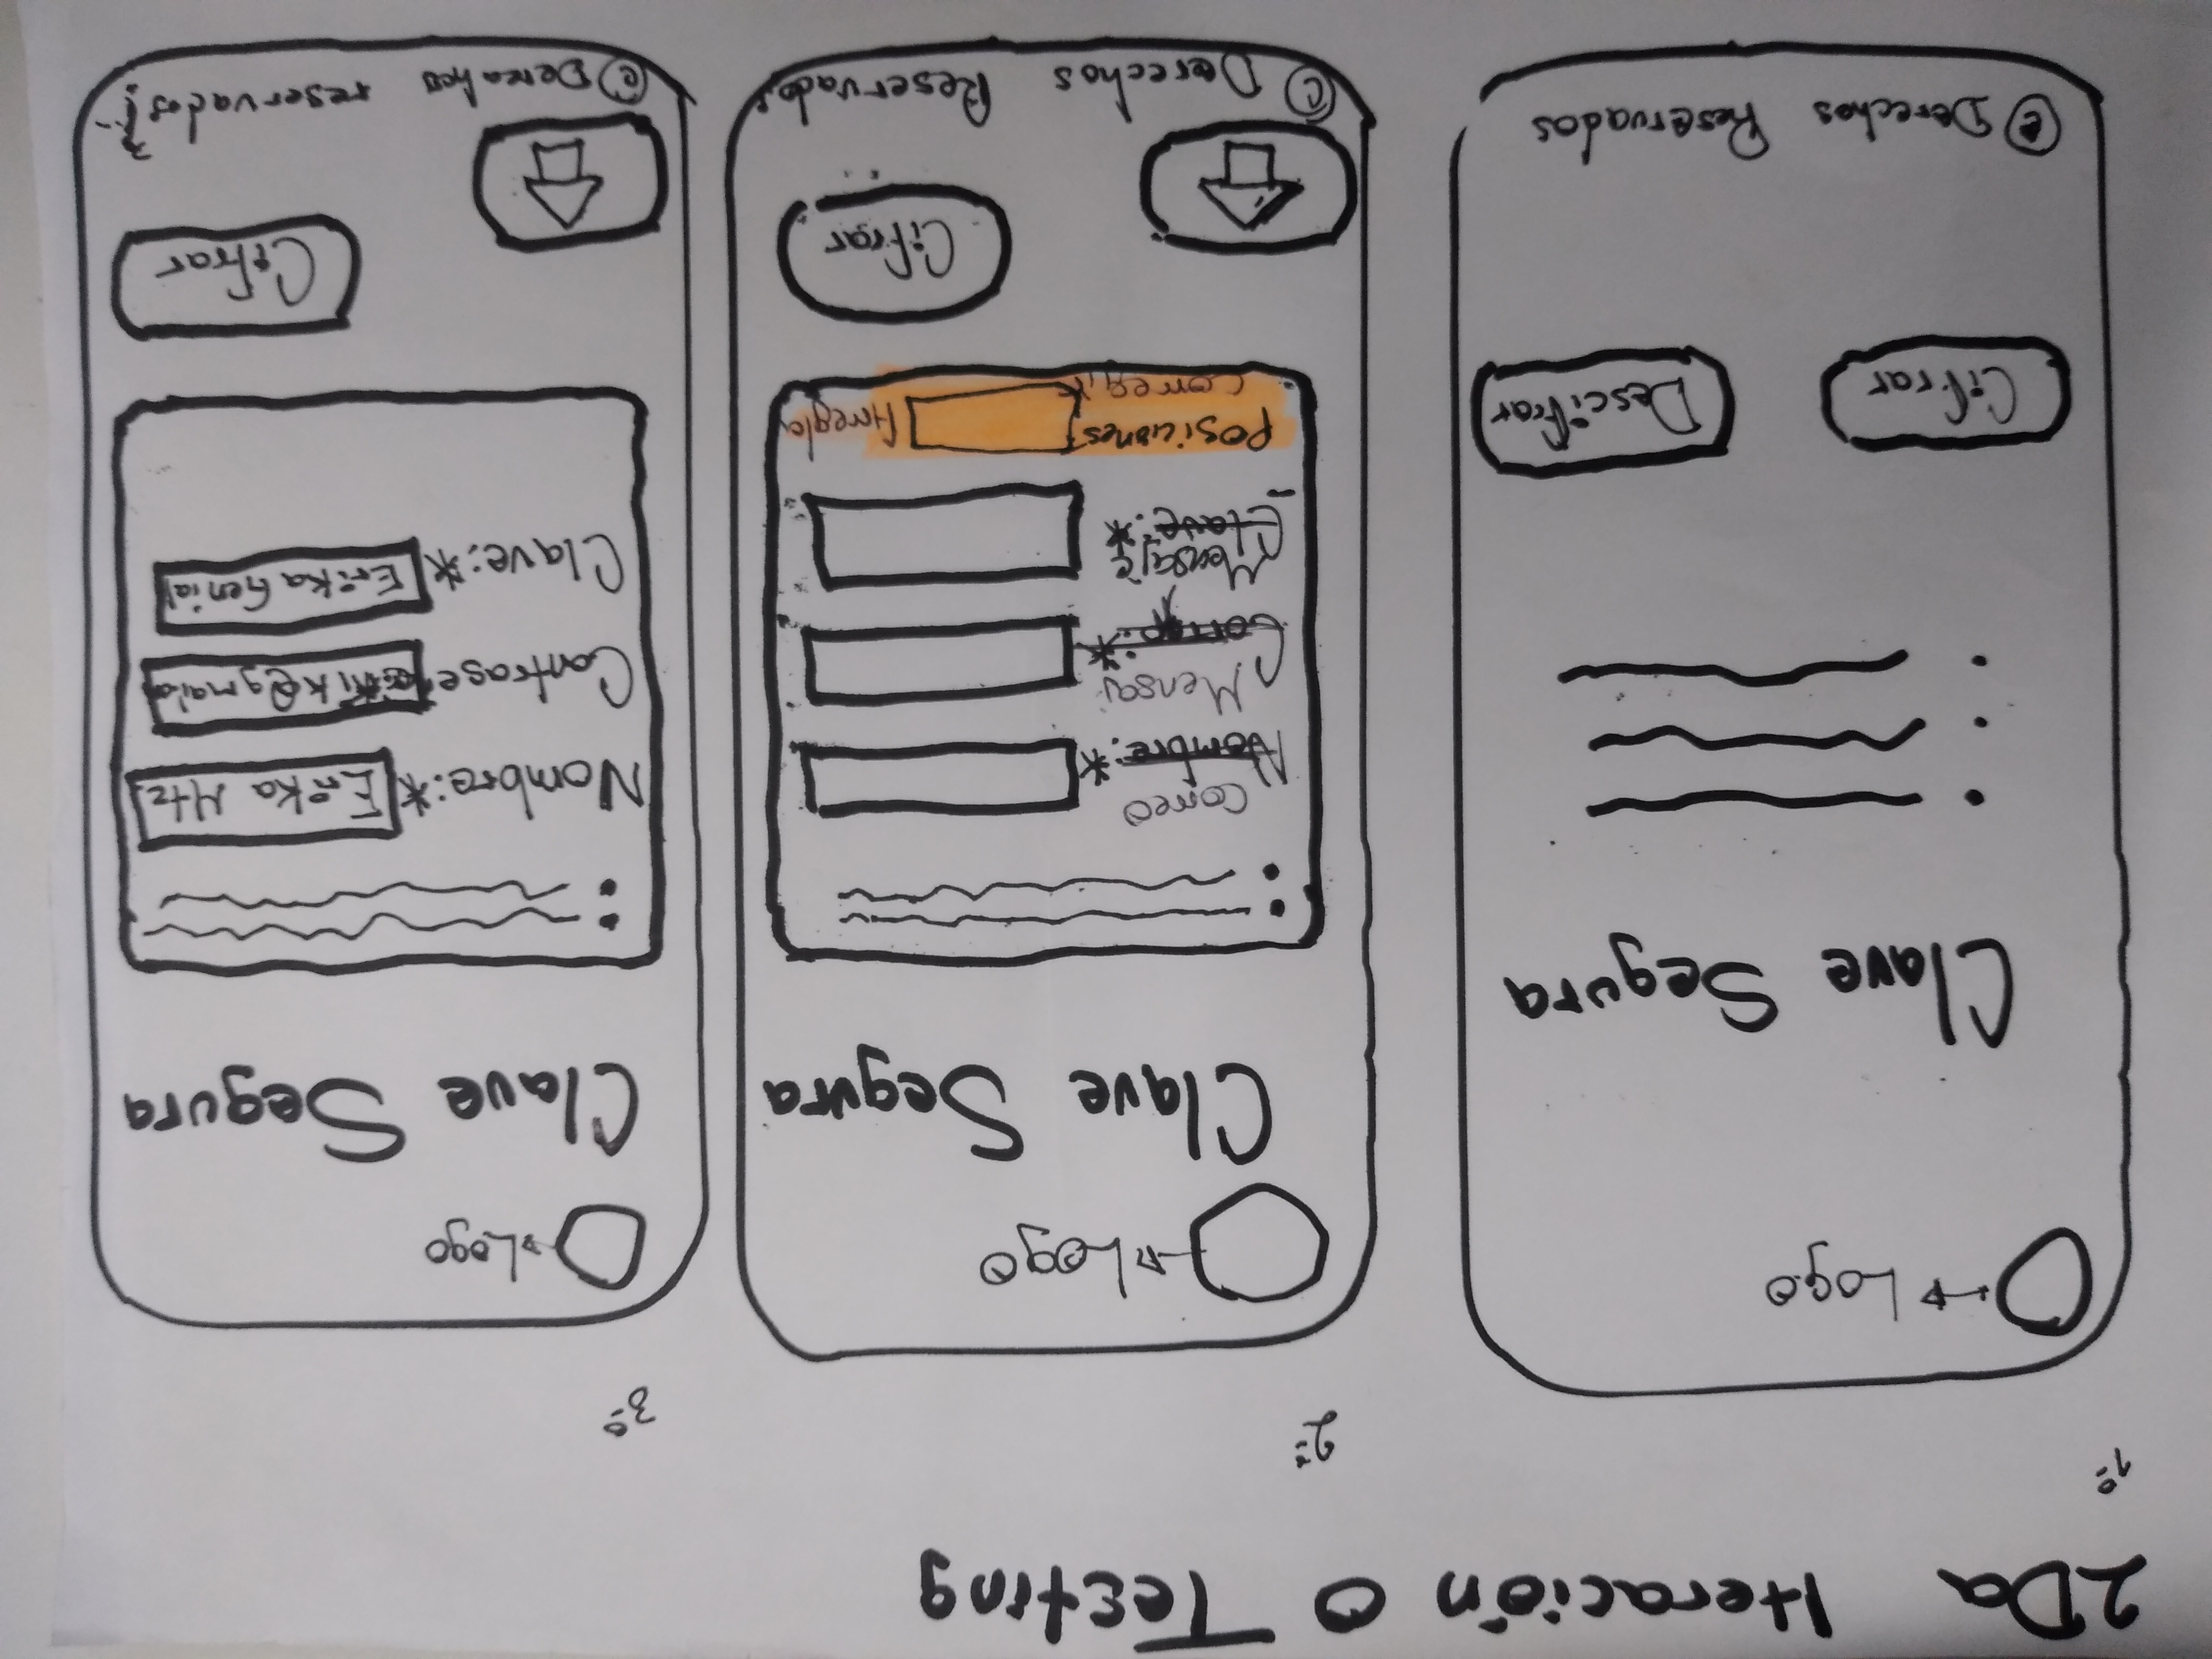 2Da Iteración o Testing
1º
Logo
Clave Segura
Cifrar
Descifrar
© Derechos Reservados
2º
Logo
Clave Segura
Correo
Nombre:*
Mensaj
Correo:*
Mensaje
Clave:*
Posiciones
Arregla
corregir
Cifrar
© Derechos Reservados
3º
Logo
Clave Segura
Nombre:* Erika Mtz
Contraseñ
Clave:* Erika Genial
Cifrar
© Derechos reservados